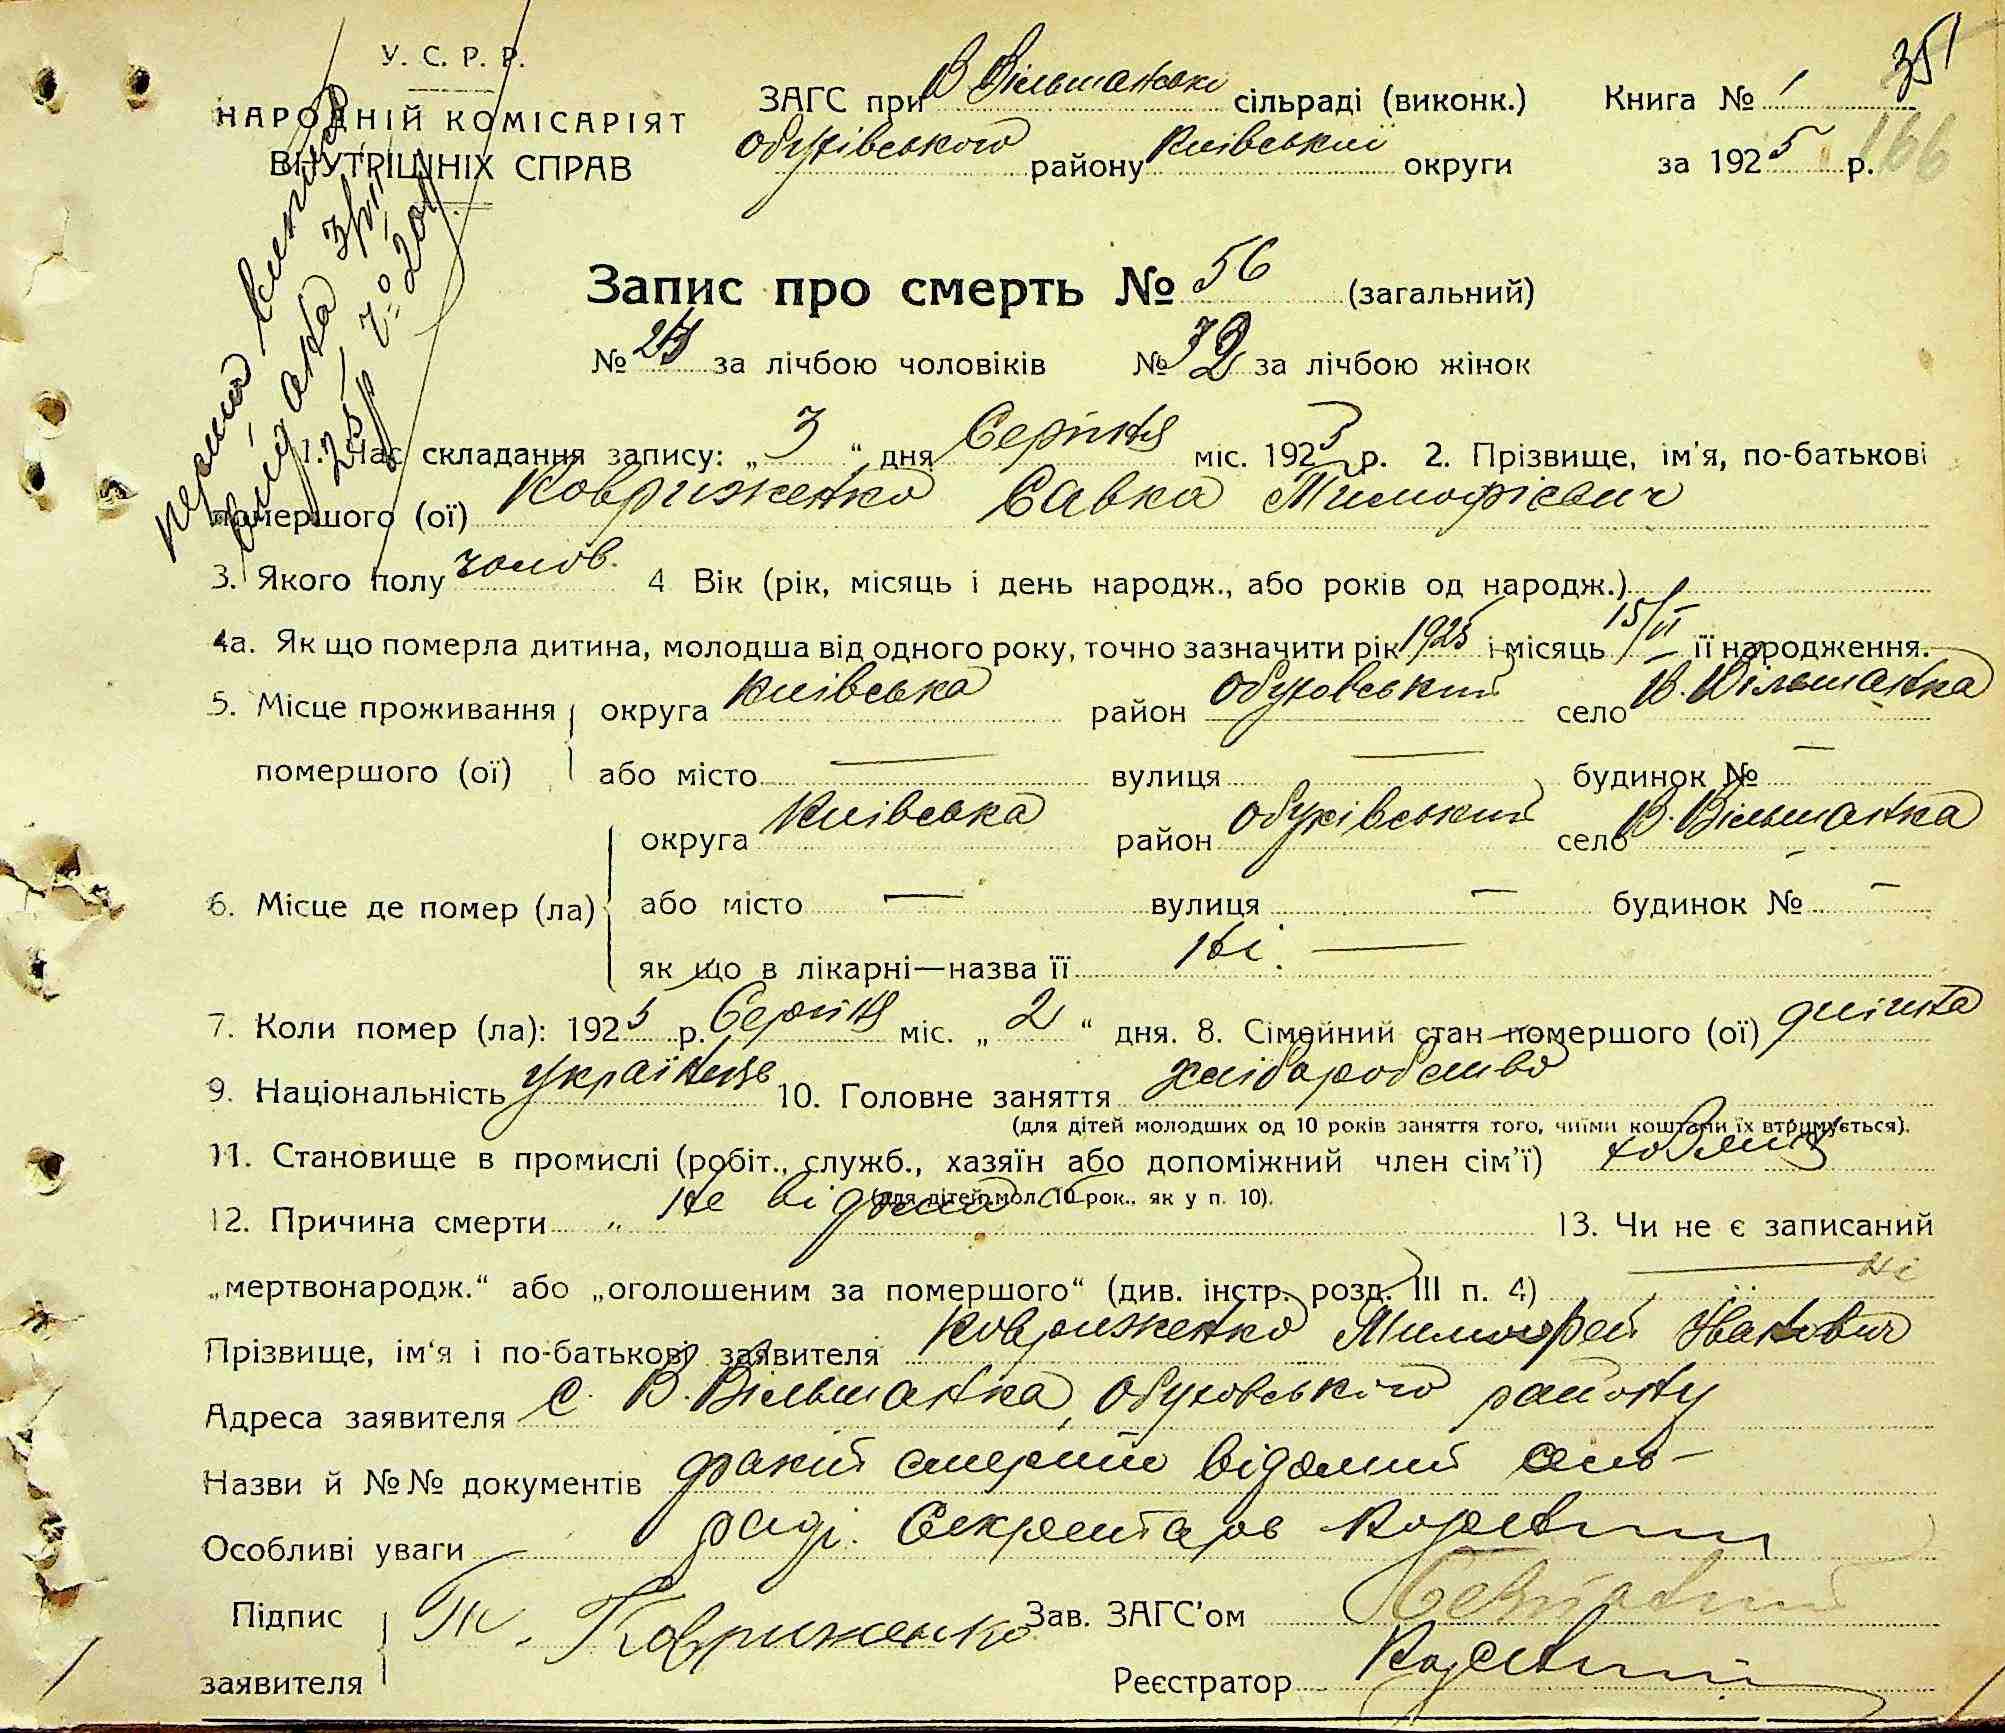 351
У. С. Р. Р.
НАРОДНІЙ КОМІСАРІЯТ
ВНУТРІШНІХ СПРАВ
ЗАГС при В Вільшанські сільраді (виконк.) Книга № 1
Обухівського району Київської округи за 1925 р. 166
Запис про смерть № 56 (загальний)
№ за лічбою чоловіків № 32 за лічбою жінок
1. Час складання запису: „ 3 “ дня Серпня міс. 1925 р. 2. Прізвище, ім'я, по-батькові
помершого (ої) Ковриженко Савка Тимофієвич
3. Якого полу чолов. 4 Вік (рік, місяць і день народж., або років од народж.)
4а. Як що померла дитина, молодша від одного року, точно зазначити рік 1925 і місяць 15/VI її народження.
5. Місце проживання округа Київська район Обуховський село В. Вільшанка
помершого (ої) або місто — вулиця — будинок № —
округа Київська район Обухівський село В. Вільшанка
6. Місце де помер (ла) або місто — вулиця — будинок № —
як що в лікарні—назва її Ні. —
7. Коли помер (ла): 1925 р. Серпня міс. „ 2 “ дня. 8. Сімейний стан помершого (ої) дитина
9. Національність Українець 10. Головне заняття хліборобство
(для дітей молодших од 10 років заняття того, чиїми коштами їх втримується).
11. Становище в промислі (робіт., служб., хазяїн або допоміжний член сім'ї)
(для дітей мол. 10 рок., як у п. 10).
12. Причина смерти „ Не відома 13. Чи не є записаний
„мертвонародж.“ або „оголошеним за помершого“ (див. інстр. розд. III п. 4) — ні
Прізвище, ім'я і по-батькові заявителя Ковриженко Тимофей Іванович
Адреса заявителя с. В. Вільшанка, Обуховського району
Назви й №№ документів факт смерти відомий сель-
Особливі уваги раді. Секретарь
Підпис Т. Ковриженко Зав. ЗАГС'ом
заявителя Реєстратор